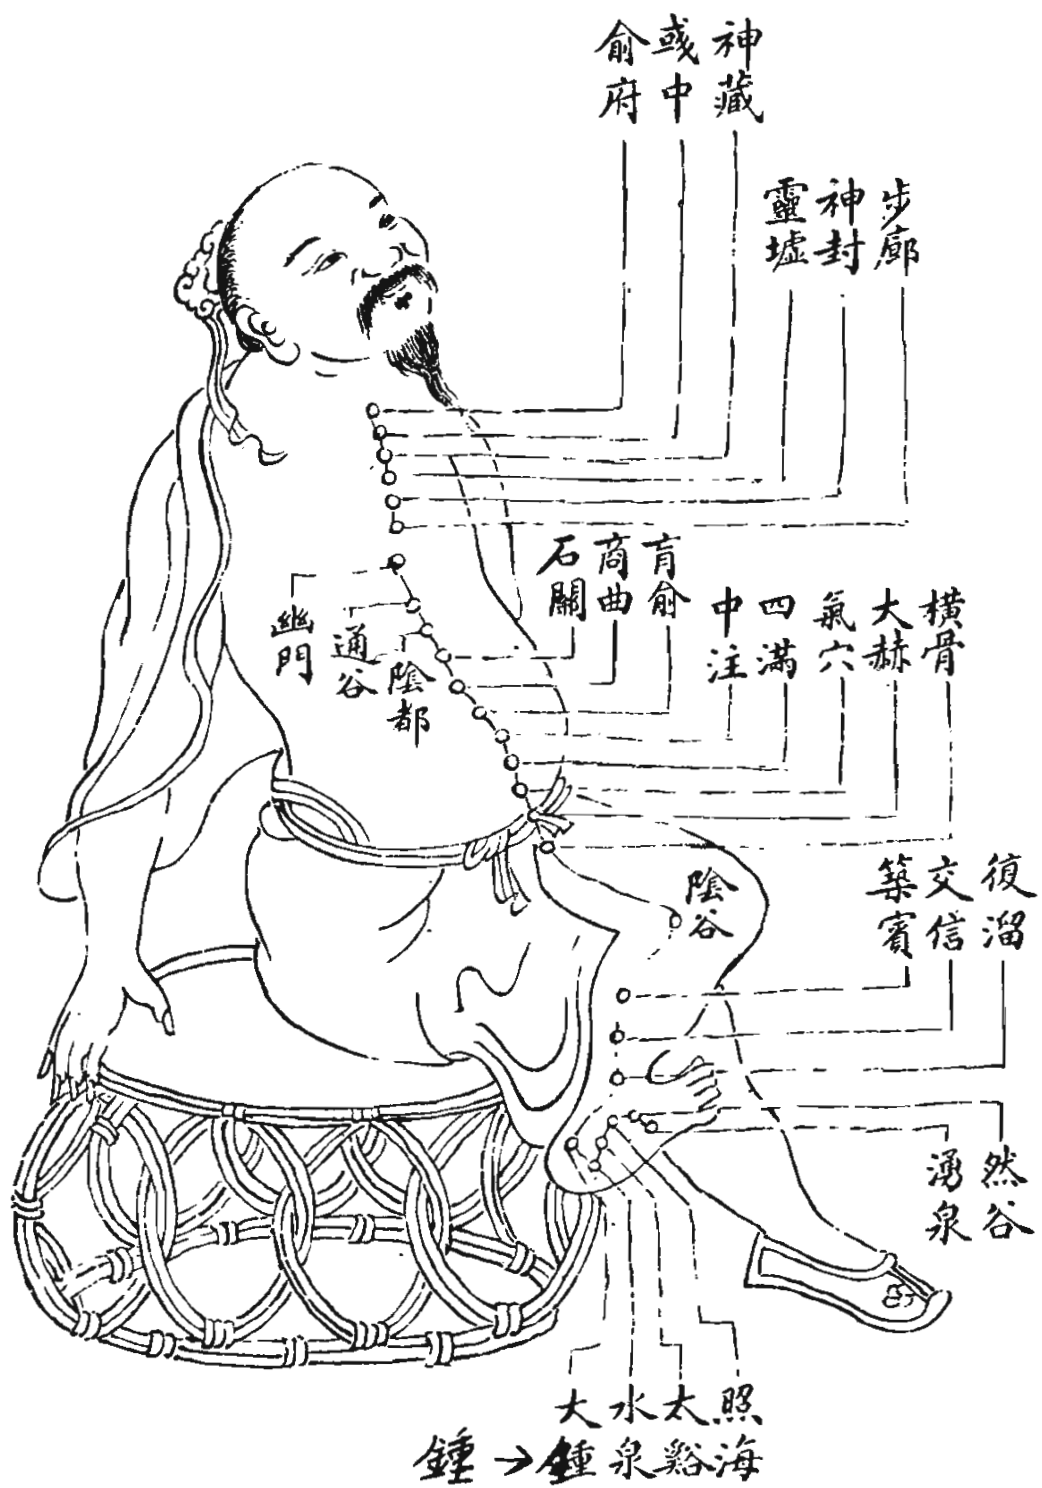 神藏
彧中
俞府
步廊
神封
靈墟
肓俞
商曲
石關
橫骨
大赫
氣穴
四滿
中注
幽門
通谷
陰都
陰谷
復溜
交信
築賓
然谷
湧泉
照海
太谿
水泉
大鍾
鍾→